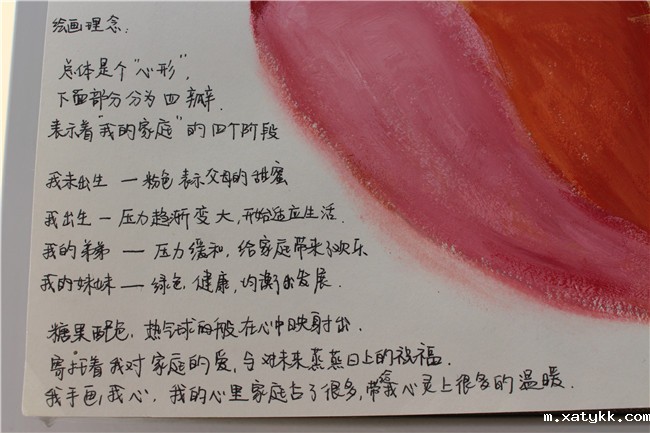 绘画理念:
总体是个“心形”,
下面部分分为四瓣.
表示着“我的家庭”的四个阶段
我未出生 — 粉色表示父母的甜蜜
我出生 — 压力趋渐变大,开始适应生活.
我的弟弟 — 压力缓和,给家庭带来了欢乐
我的妹妹 — 绿色,健康,均衡的发展.
糖果配色,热气球的般在心中映射出.
寄托着我对家庭的爱,与对未来蒸蒸日上的祝福.
我手画我心,我的心里家庭占了很多,带给我心灵上很多的温暖.
m.xatykk.com